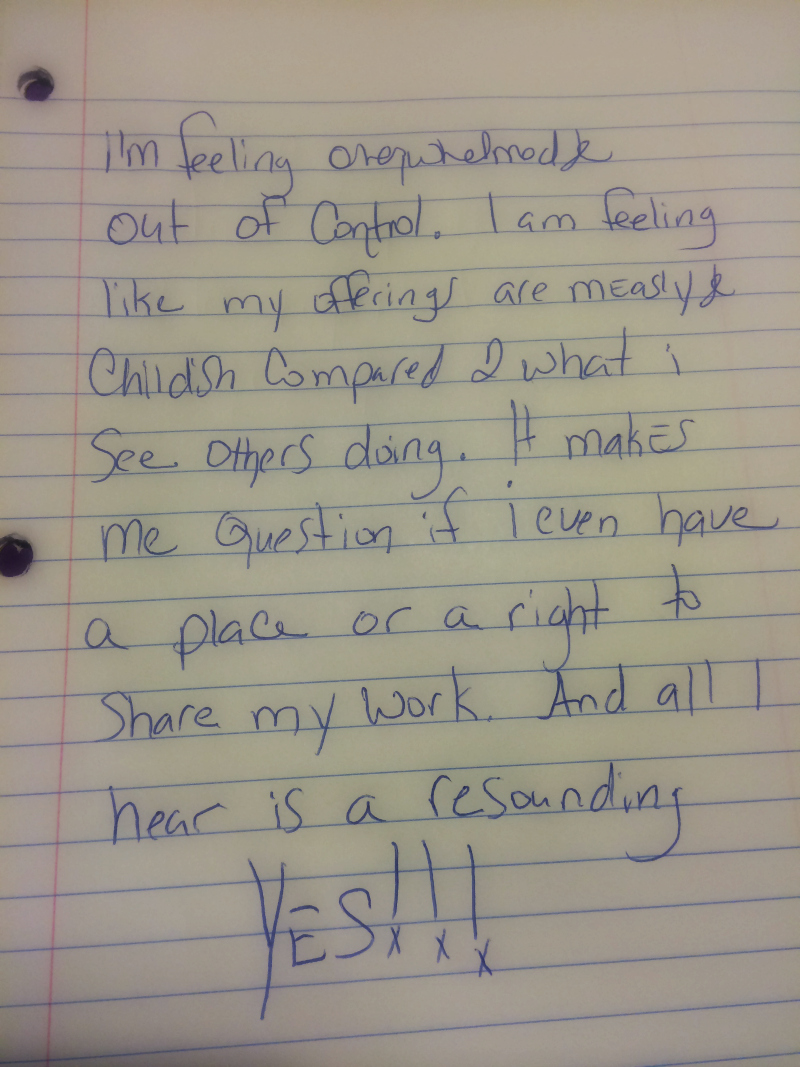 I'm feeling overwhelmed &
out of Control. I am feeling
like my offerings are mEasly &
Childish Compared 2 what i
See others doing. It makEs
me Question if i even have
a place or a right to
Share my Work. And all I
hear is a resounding
YES!!!